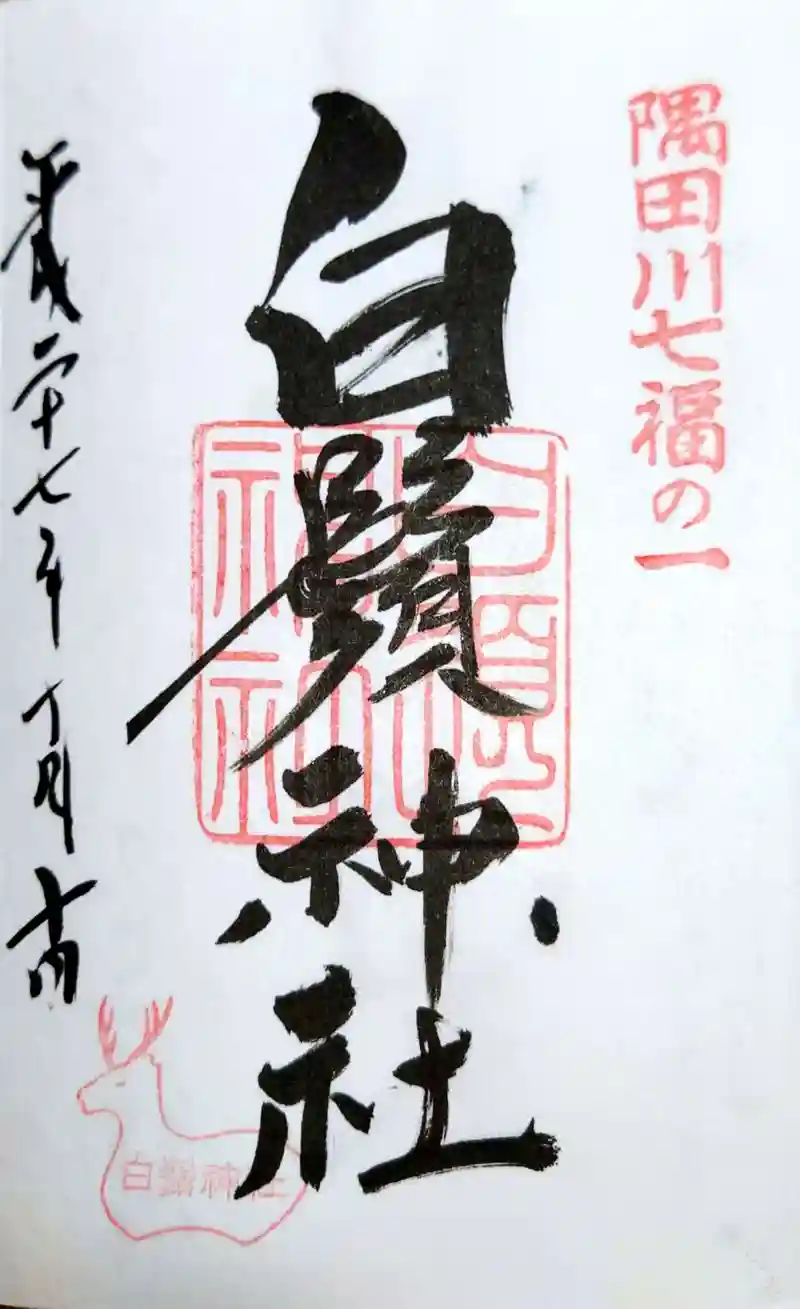 隅田川七福の一
白鬚神社
白鬚神社
平成二十七年十月十四日
白鬚神社